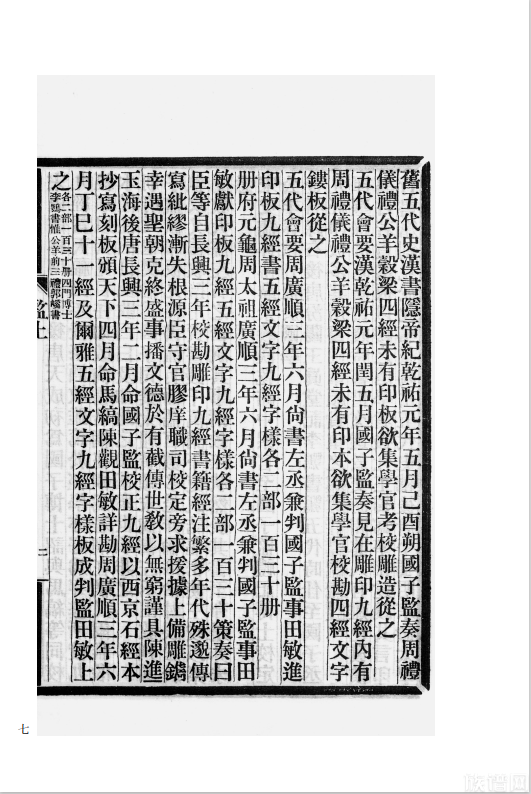 舊五代史漢書隱帝紀乾祐元年五月己酉朔國子監奏周禮
儀禮公羊穀梁四經未有印板欲集學官考校雕造從之
五代會要漢乾祐元年閏五月國子監奏見在雕印九經內有
周禮儀禮公羊穀梁四經未有印本欲集學官校勘四經文字
鏤板從之
五代會要周廣順三年六月尚書左丞兼判國子監事田敏進
印板九經書五經文字九經字樣各二部一百三十册
册府元龜周太祖廣順三年六月尚書左丞兼判國子監事田
敏獻印板九經五經文字九經字樣各二部一百三十策奏曰
臣等自長興三年校勘雕印九經書籍經注繁多年代殊邈傳
寫紕繆漸失根源臣守官膠庠職司校定旁求援據上備雕鐫
幸遇聖朝克終盛事播文德於有截傳世敎以無窮謹具陳進
玉海後唐長興三年二月命國子監校正九經以西京石經本
抄寫刻板頒天下四月命馬縞陳觀田敏詳勘周廣順三年六
月丁巳十一經及爾雅五經文字九經字樣板成判監田敏上
之各二部一百三十册四門博士
李鶚書惟公羊前三禮郭嵠書
監上
二
七